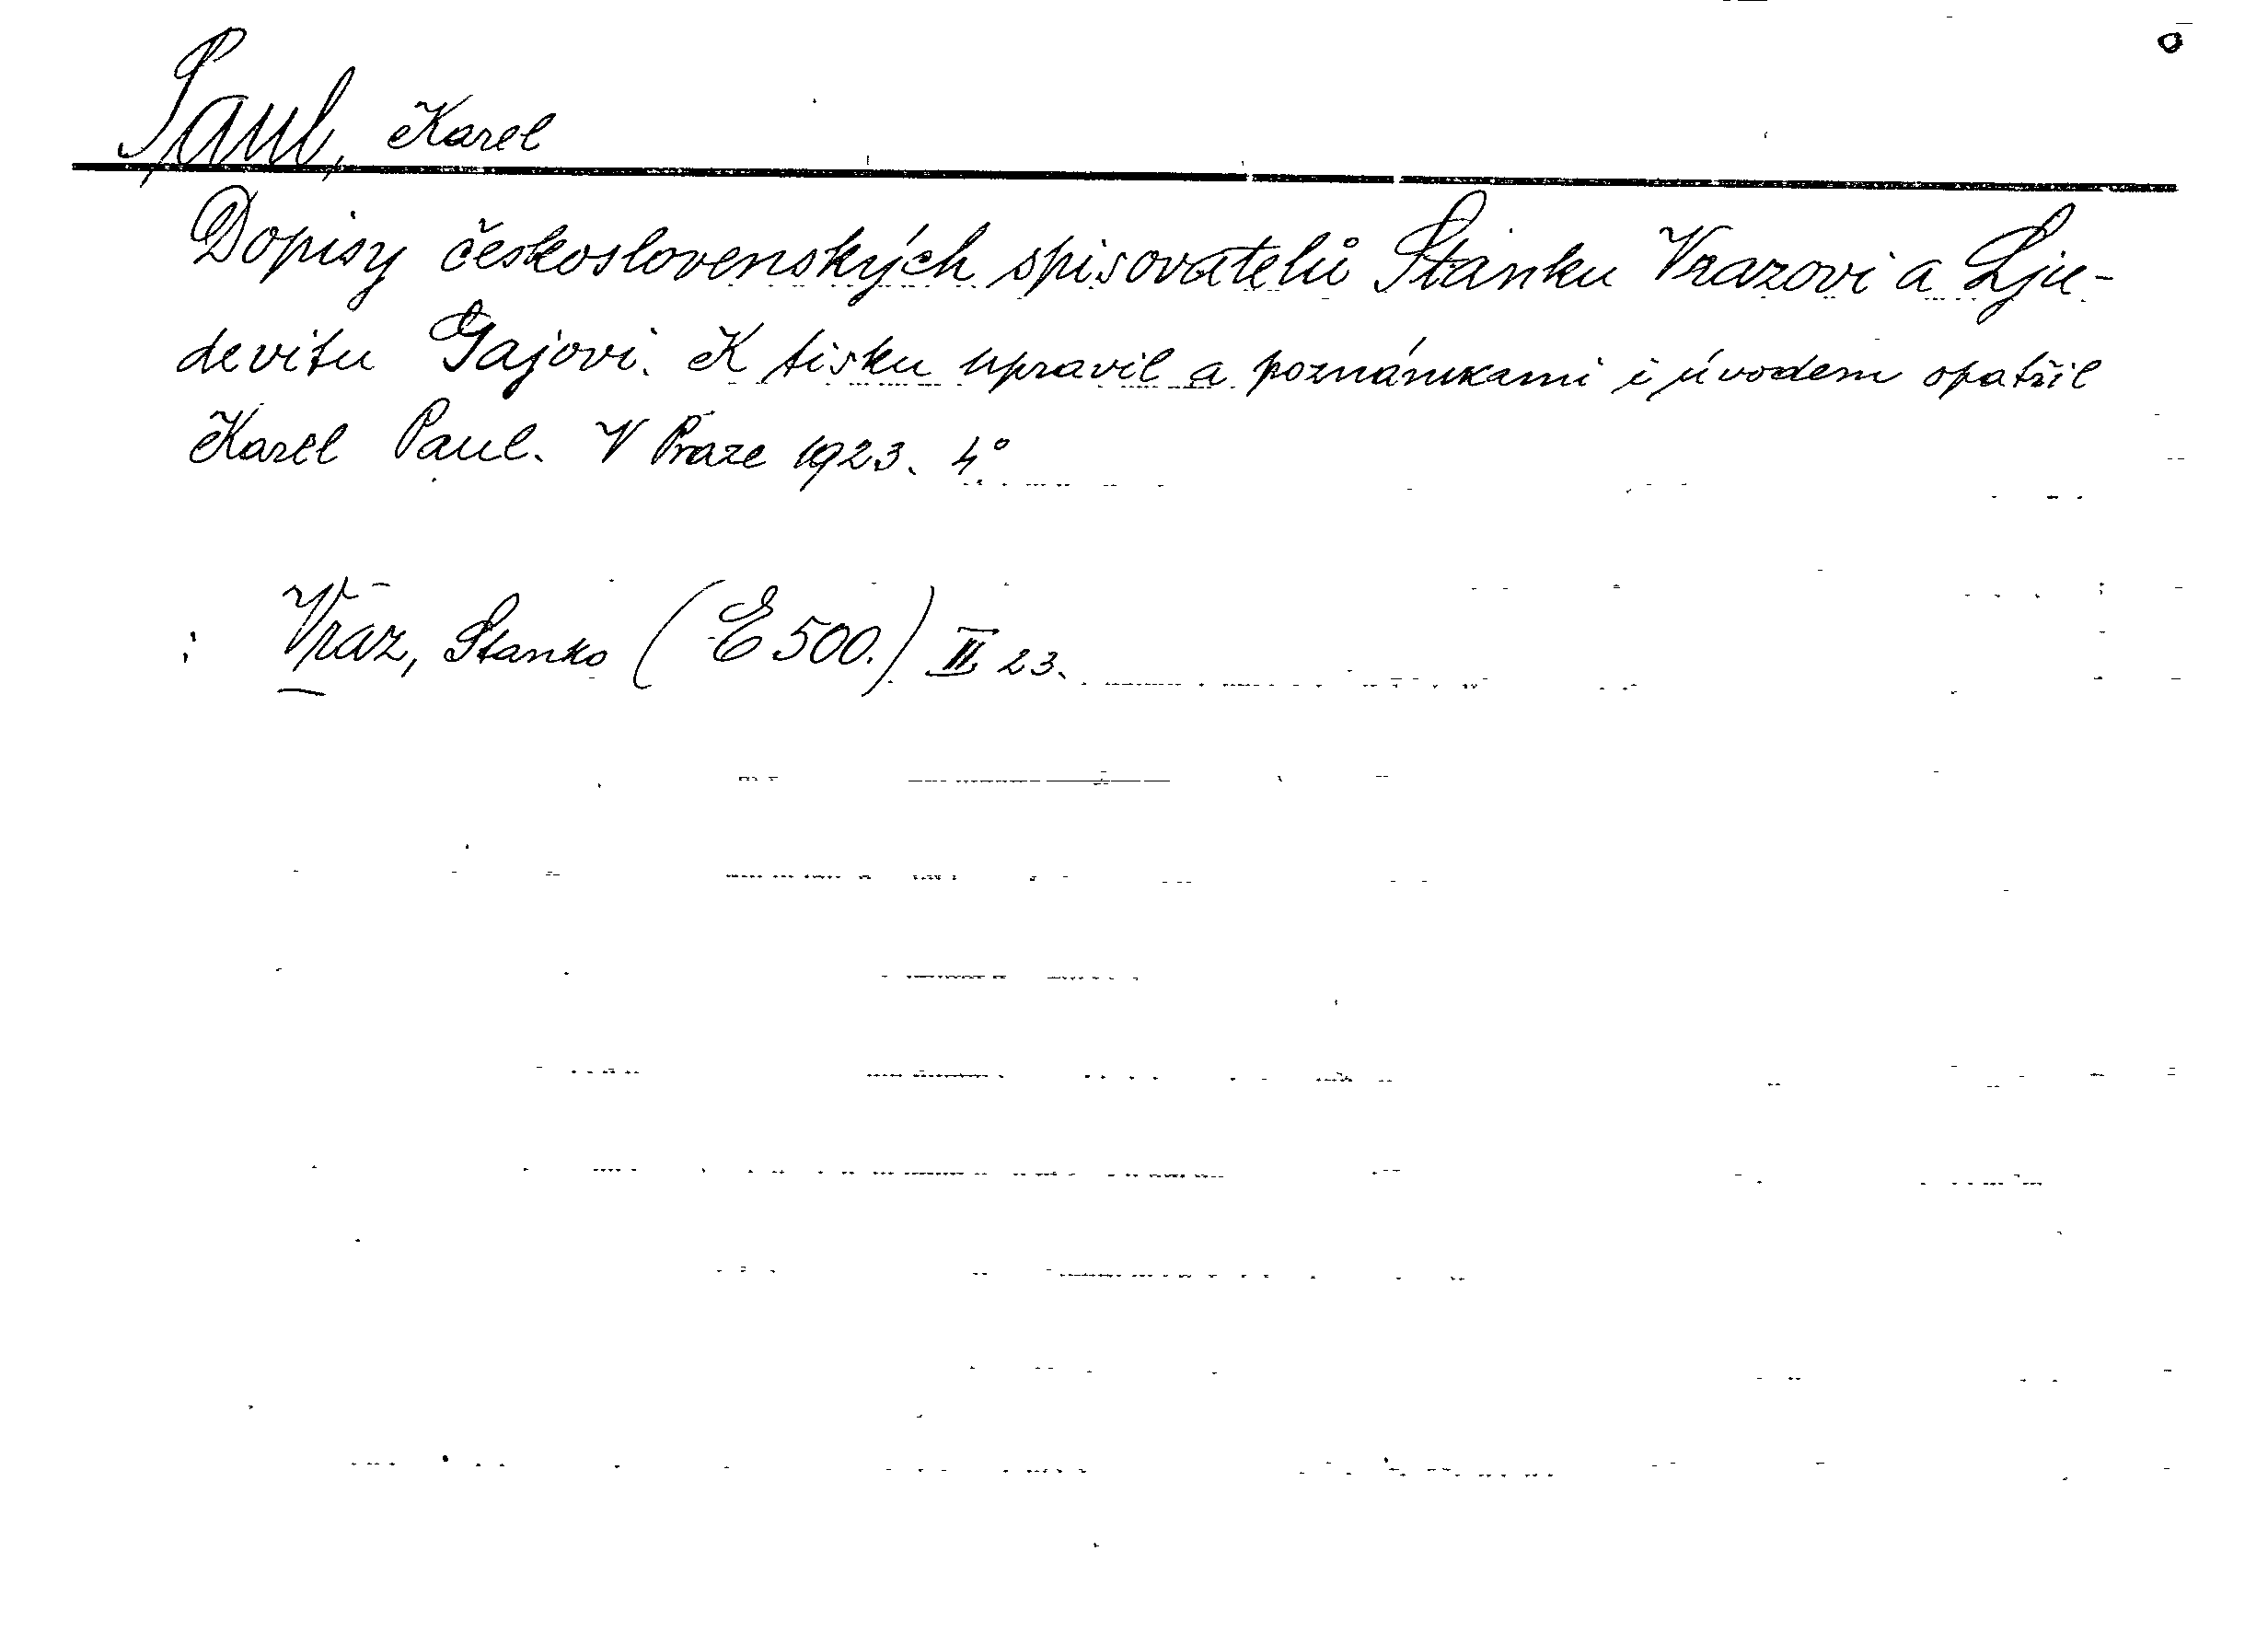 Paul, Karel
Dopisy československých spisovatelů Stanku Vrazovi a Lju-
devitu Gajovi. K tisku upravil a poznámkami i úvodem opatřil
Karel Paul. V Praze 1923. 4°
: Vraz, Stanko (E 500.) II 23.